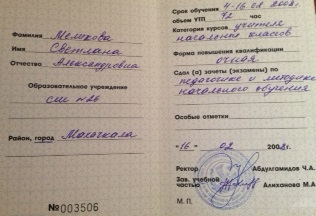 Фамилия Меликова
Имя Светлана
Отчество Александровна
Образовательное учреждение
сш №26
Район, город Махачкала
№003506
Срок обучения 4-16 02 2008г.
объем УТП 72 час
Категория курсов учителя
начальных классов
Форма повышения квалификации
очная
Сдал (а) зачеты (экзамены) по
педагогике и методике
начального обучения
Особые отметки
"16" 02 2008г.
Ректор Абдулгамидов Ч.А.
Зав. учебной
частью Алиханова М.А.
М. П.